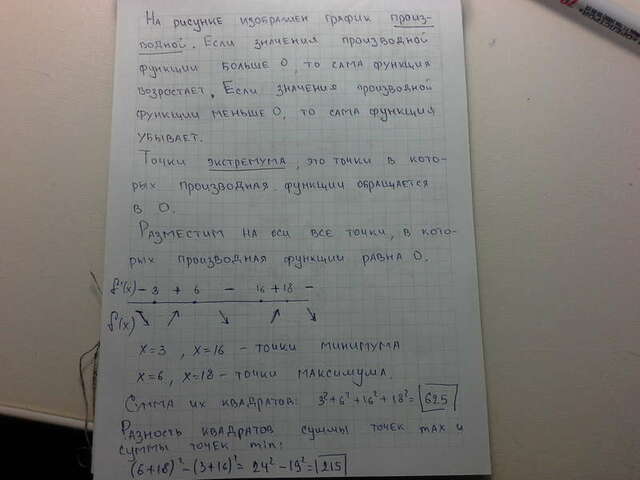 На рисунке изображен график произ-
водной. Если значения производной
функции больше 0, то сама функция
возростает. Если значения производной
функции меньше 0, то сама функция
убывает.
Точки экстремума, это точки в кото-
рых производная функции обращается
в 0.
Разместим на оси все точки, в кото-
рых производная функции равна 0.
f'(x) - 3 + 6 - 16 + 18 -
f(x) ↘ ↗ ↘ ↗ ↘
x=3, x=16 - точки минимума
x=6, x=18 - точки максимума.
Сумма их квадратов: 3²+6²+16²+18²= 625
Разность квадратов суммы точек max и
суммы точек min:
(6+18)²-(3+16)²= 24²-19²= 215